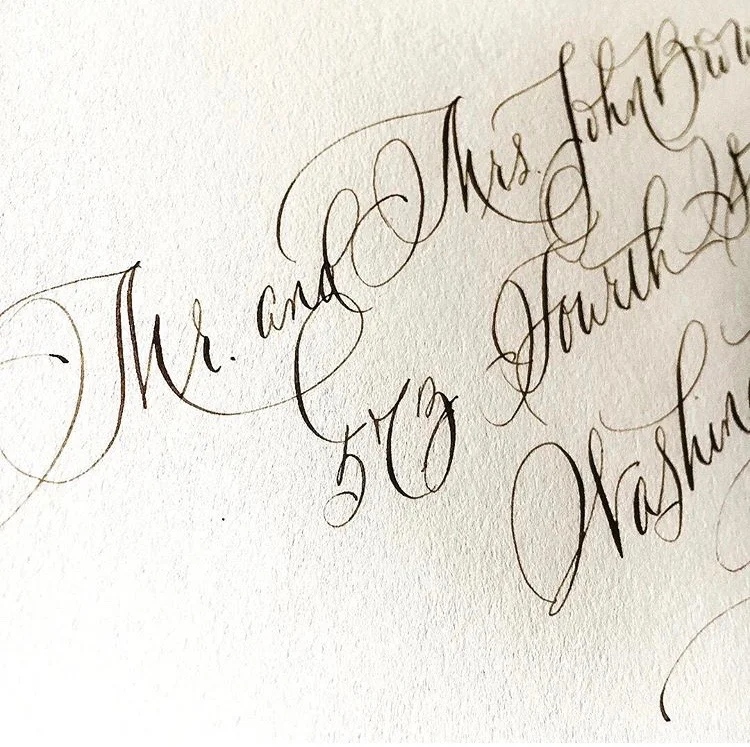 Mr. and Mrs. John Brow
573 Fourth St
Washin